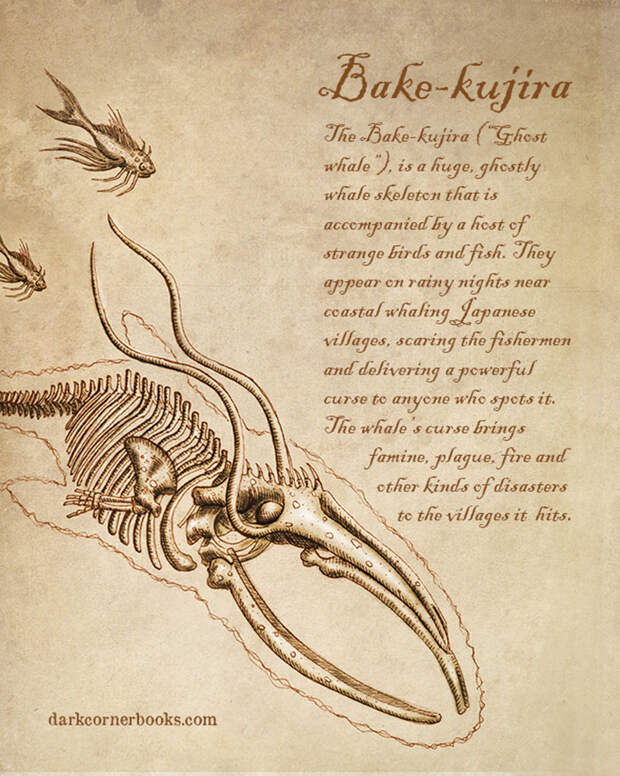 Bake-kujira
The Bake-kujira ("Ghost
whale"), is a huge, ghostly
whale skeleton that is
accompanied by a host of
strange birds and fish. They
appear on rainy nights near
coastal whaling Japanese
villages, scaring the fishermen
and delivering a powerful
curse to anyone who spots it.
The whale's curse brings
famine, plague, fire and
other kinds of disasters
to the villages it hits.
darkcornerbooks.com